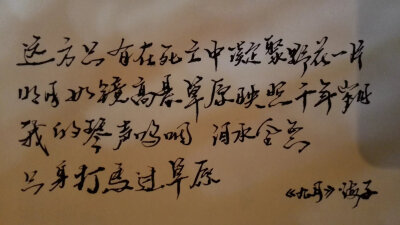 远方只有在死亡中凝聚野花一片
明月如镜高悬草原映照千年岁月
我的琴声呜咽 泪水全无
只身打马过草原
《九月》海子